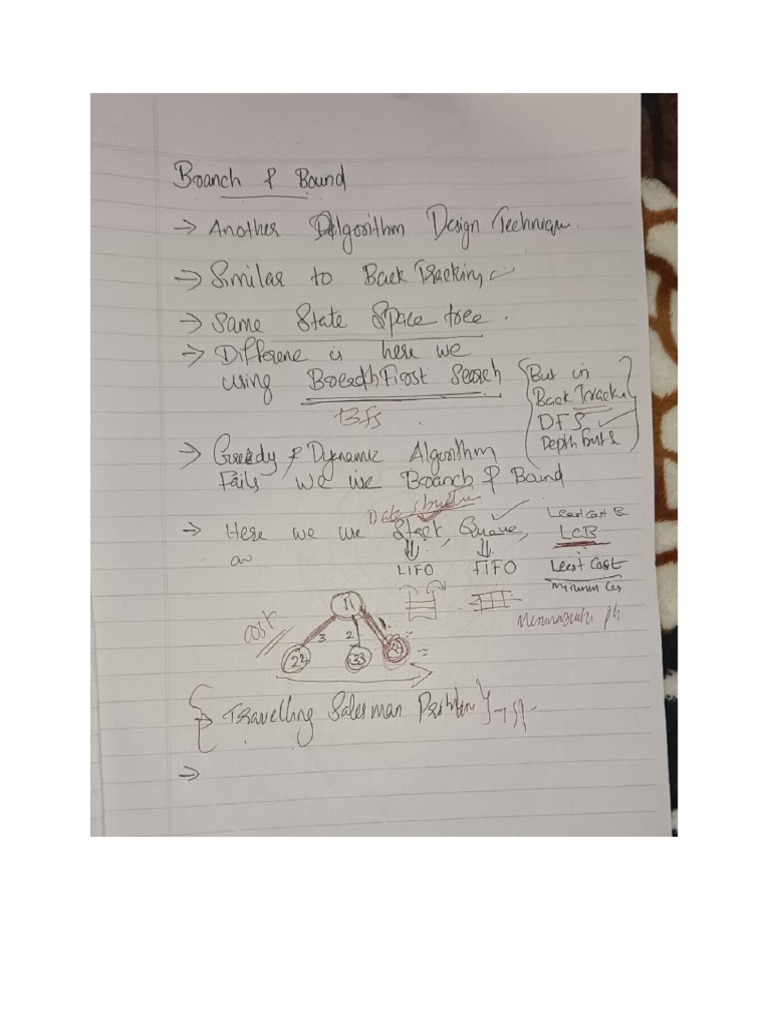 Branch & Bound
→ Another Algorithm Design Technique.
→ Similar to Back Tracking
→ Same State Space tree.
→ Difference is here we
using Breadth First Search
Bfs
But in
Back Track
DFS
Depth
→ Greedy & Dynamic Algorithm
Fails we use Branch & Bound
Data structure
Least Cost B
→ Here we use Stack, Queue, LCB
as
LIFO FIFO Least Cost
11
cost
3 2 1
22 33
→ Travelling Salesman Problem
→